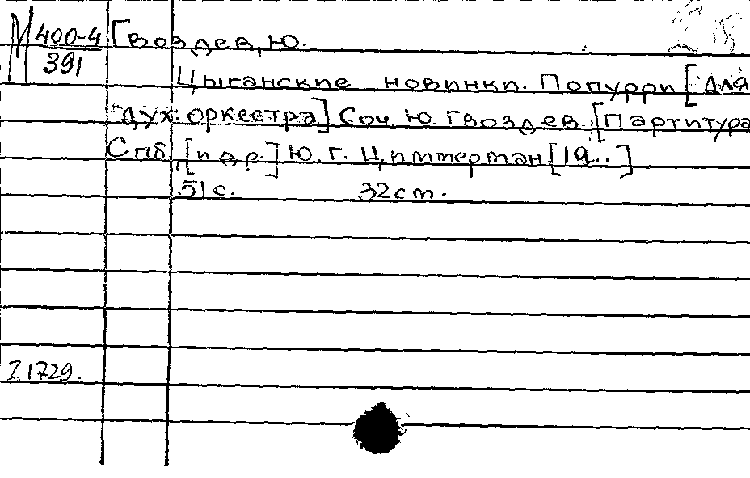 М 400-4 Гвоздев, Ю.
391
Цыганские новинки. Попурри [для
дух. оркестра] Соч. Ю. Гвоздев. [Партитура
Спб. [и др.] Ю. Г. Циммерман [19..]
51 с. 32 cm.
71729.